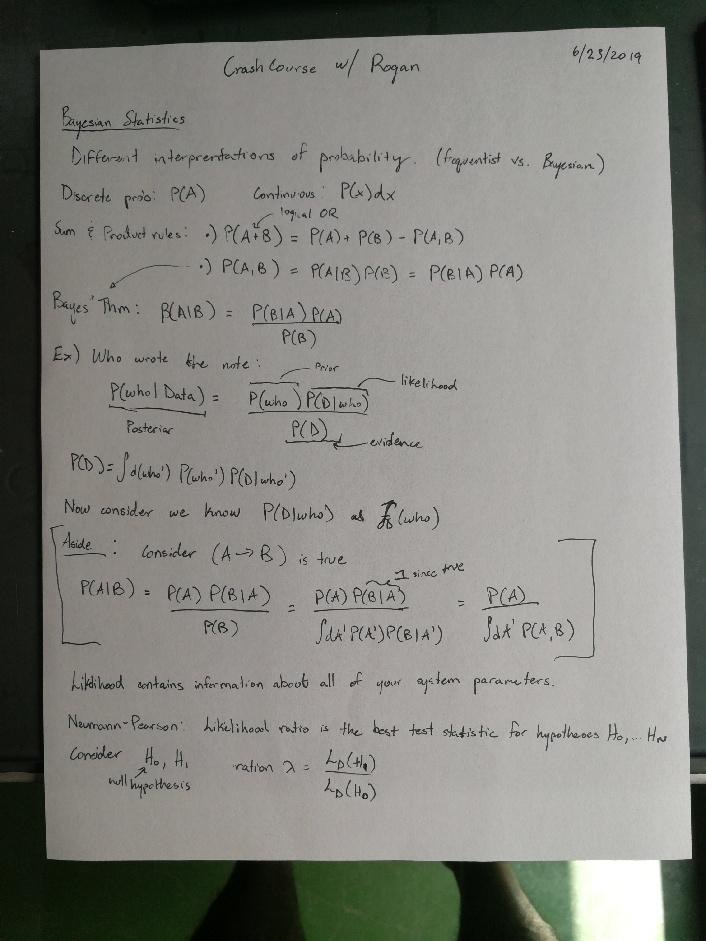 Crash Course w/ Rogan
6/23/2019
Bayesian Statistics
Different interprentations of probability. (frequentist vs. Bayesian)
Discrete prob: P(A) Continuous: P(x)dx
logical OR
Sum & Product rules: •) P(A+B) = P(A) + P(B) - P(A,B)
•) P(A,B) = P(A|B)P(B) = P(B|A) P(A)
Bayes' Thm: P(A|B) = P(B|A) P(A) / P(B)
Ex) Who wrote the note:
Prior
likelihood
P(who|Data) = P(who) P(D|who) / P(D)
Posterior
evidence
P(D) = ∫d(who') P(who') P(D|who')
Now consider we know P(D|who) as (who)
Aside: Consider (A→B) is true
1 since true
P(A|B) = P(A) P(B|A) / P(B) = P(A) P(B|A) / ∫dA' P(A')P(B|A') = P(A) / ∫dA' P(A,B)
Liklihood contains information about all of your system parameters.
Neumann-Pearson: Likelihood ratio is the best test statistic for hypotheses H0,... HN
Consider H0, H1 ration λ = LD(H1) / LD(H0)
null hypothesis